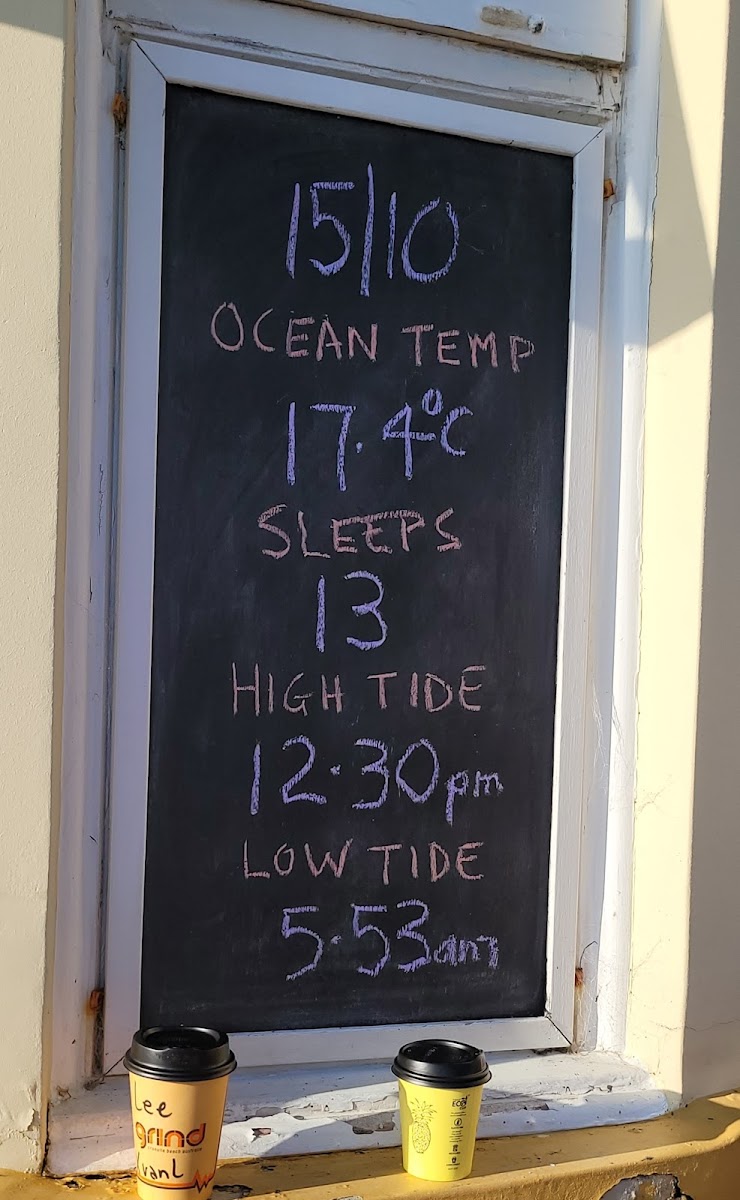 15/10
OCEAN TEMP
17.4°C
SLEEPS
13
HIGH TIDE
12.30pm
LOW TIDE
5.53am
Lee
grind
vanL